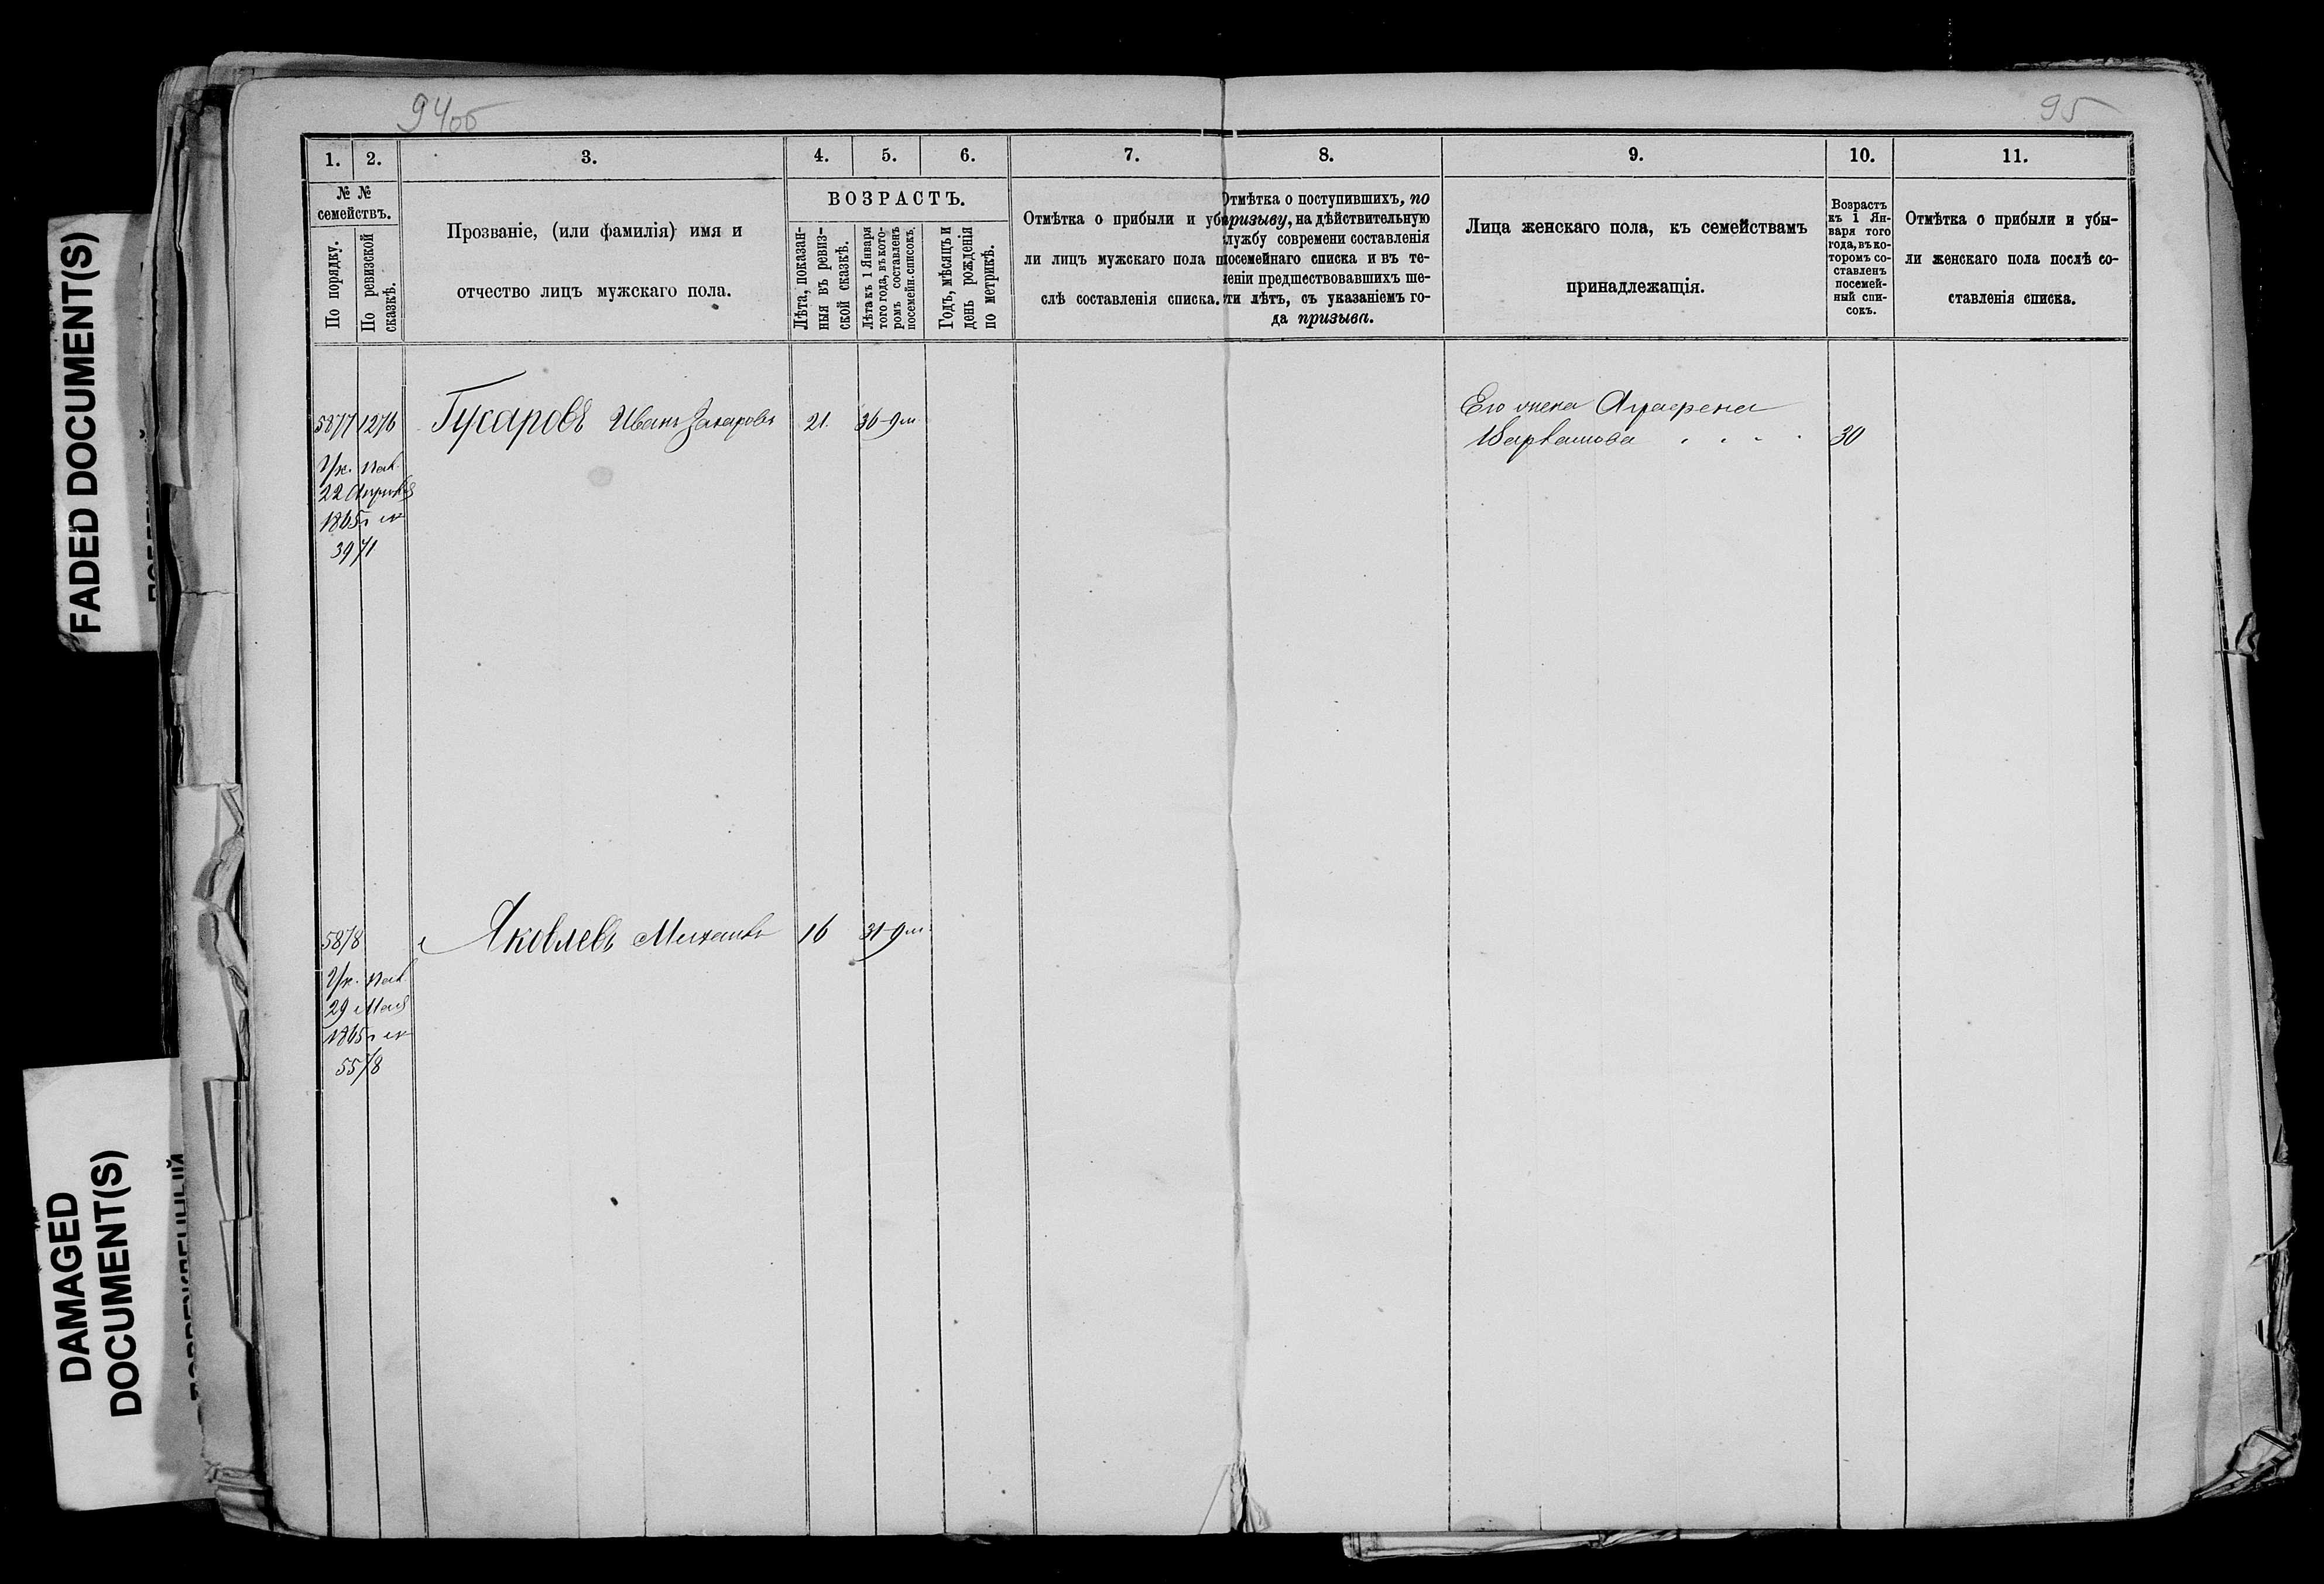 94об
95
1.
2.
3.
4.
5.
6.
7.
8.
9.
10.
11.
№ №
семействъ.
По порядку.
По ревизской
сказкѣ.
Прозваніе, (или фамилія) имя и
отчество лицъ мужскаго пола.
ВОЗРАСТЪ.
Лѣта, показан-
ныя въ ревиз-
ской сказкѣ.
Лѣта къ 1 Января
того года, въ кото-
ромъ составленъ
посемейн. списокъ.
Годъ, мѣсяцъ и
день рожденія
по метрикѣ.
Отмѣтка о прибыли и уб
ли лицъ мужскаго пола п
слѣ составленія списка.
Отмѣтка о поступившихъ, по
призыву, на дѣйствительную
службу современи составленія
посемейнаго списка и въ те-
ченіи предшествовавшихъ ше-
сти лѣтъ, съ указаніемъ го-
да призыва.
Лица женскаго пола, къ семействамъ
принадлежащія.
Возрастъ
къ 1 Ян-
варя того
года, въ ко-
торомъ со-
ставленъ
посемей-
ный спи-
сокъ.
Отмѣтка о прибыли и убы-
ли женскаго пола послѣ со-
ставленія списка.
5877 1276 Гусаровъ Иванъ Захаровъ 21. 36-9м
Ук. Пал.
22 Апрѣля
1865 г №
3971
Его жена Аграфена
30
5878 Яковлевъ Михаилъ 16 31-9м
Ук. Пал.
29 Мая
1865 г №
5578
FADED DOCUMENT(S)
DAMAGED
DOCUMENT(S)